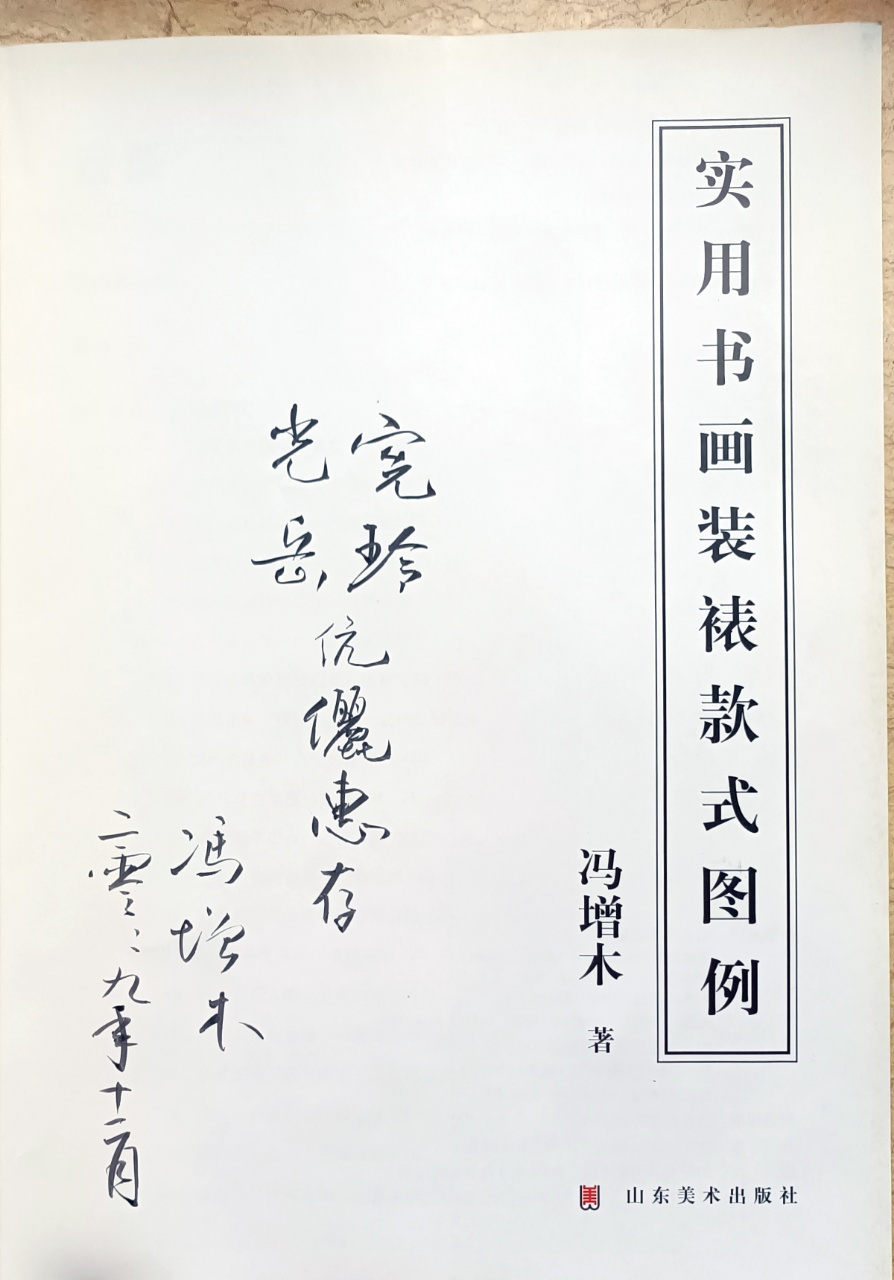 实用书画装裱款式图例
冯增木 著
山东美术出版社
宪玲
光岳
伉儷惠存
冯增木
二零零九年十二月